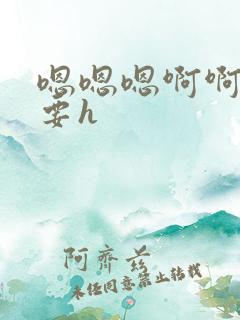 嗯嗯嗯啊啊
要h
阿齐兹
未经同意禁止转载